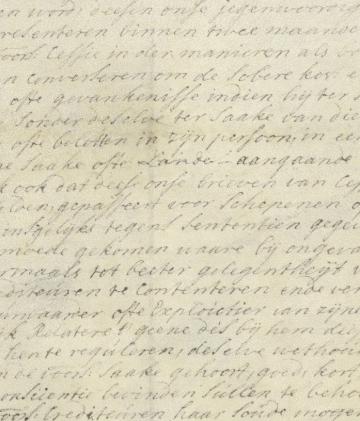 en word; deesen onse jegenwoordig
resenteren binnen twee maande
voors: Cessie in der manieren als b
n Converseren om de Sobere kos: e
ofte gevankenisse indien hij ter
Sonder deselve ter Saake van die
ofte beletten in zijn persoon, in ee
ne Saake ofte Lande - aangaande
k ook dat dees onse brieven van Ces
gepasseert voor Schepenen o
tegens Sententien gegev
moede gekomen waare bij ongeva
rmaals tot beeter gelegentheijt v
editeuren te Contenteren ende ver
waarer ofte Exploictier van zijne
ijk Relateret geene dis bij hem des
hen te reguleren; deselve wethou
de voors: Saake gehoort, goed; kort
onscientie bevinden Sullen te beho
voors: Crediteuren haar Soude mogen